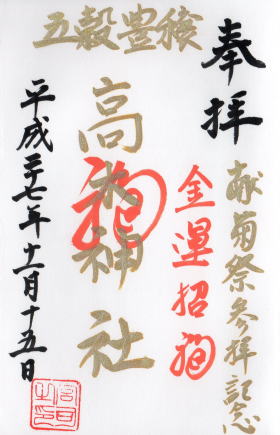 五穀豊穣
奉拝
献菊祭参拝記念
金運招福
高木神社
福
平成二十七年十一月十五日